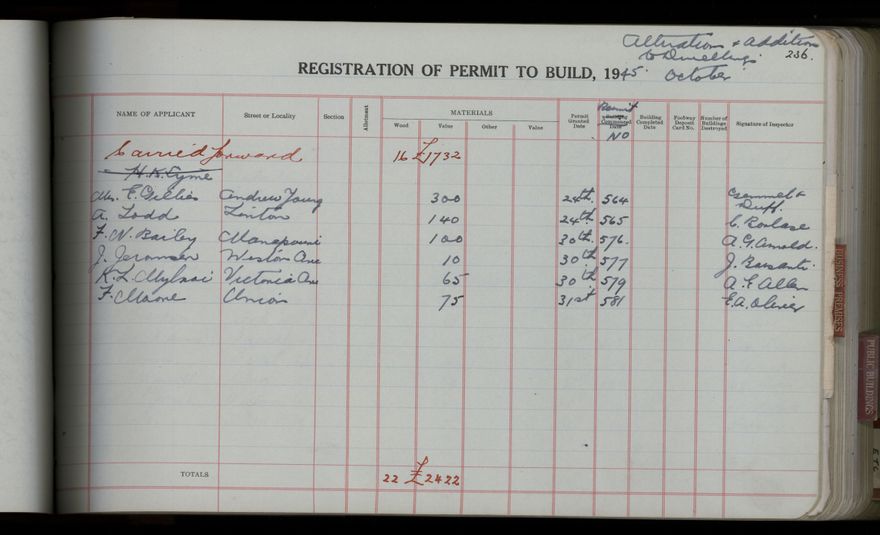 Alterations & Additions
to Dwellings 236.
REGISTRATION OF PERMIT TO BUILD, 1945. October
NAME OF APPLICANT Street or Locality Section Allotment MATERIALS Wood Value Other Value Permit Granted Date Permit Commenced Date No Building Completed Date Footway Deposit Card No. Number of Buildings Destroyed Signature of Inspector
Carried forward 16 £1732
H. K. Eyme
Mrs. E. Gillies Andrew Young 300 24th. 564 &
Duff.
A. Todd Linton 140 24th. 565 C. Borlase
F. N. Bailey Manapouri 100 30th. 576 A. G. Arnold.
J. Weston Ave 10 30th 577 J.
K. L. Victoria Ave 65 30th 579 A. E. Allen
F. Moore Union 75 31st 581 E.A. Olivier
TOTALS 22 £2422
BUSINESS PREMISES
PUBLIC BUILDINGS
ETC